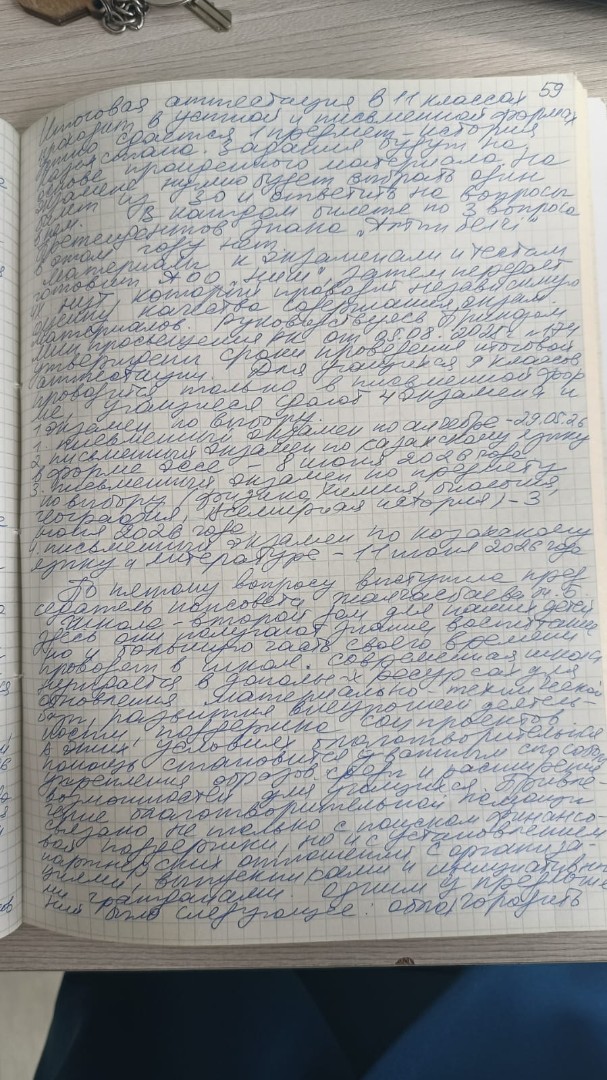 59
Итоговая аттестация в 11 классах
проходит в устной и письменной формах
устно сдается 1 предмет - история
Казахстана. Задания будут на
основе пройденного материала. На
экзамене нужно будет выбрать один
билет из 30 и ответить на вопросы
в нем. В каждом билете по 3 вопроса
Претендентов знака "Алтын белгі"
в этом году нет.
Материалы к экзаменам и тестам
готовит АОО "НИШ" затем передает
в НЦТ который проводит независимую
оценку качества содержания экзам.
материалов. Руководствуясь Приказом
Мин. просвещения РК от 25.08.2025
утверждены сроки проведения итоговой
аттестации. Для учащихся 9 классов
проводится только в письменной фор
ме учащиеся сдают 4 экзамена и
1 экзамен по выбору.
1. письменный экзамен по алгебре - 29.05.26
2. письменный экзамен по казахскому языку
в форме эссе - 8 июня 2026 года
3. письменный экзамен по предмету
по выбору (физика, химия, биология,
география, всемирная история) - 3
июня 2026 года
письменный экзамен по казахскому
языку и литературе - 11 июня 2026 года
По пятому вопросу выступила пред
седатель попсовета
Школа - второй дом для наших детей
Здесь они получают знание, воспитание
но и большую часть своего времени
проводят в школе. Современная школа
нуждается в дополн-х ресурсах для
обновления материально технической
базы, развития внеурочной деятель-
ности, поддержки соцпроектов
В этих условиях благотворительная
помощь становится важным способом
укрепления образов. среды и расширения
возможностей для учащихся. Привле-
чение благотворительной помощи
связано не только с поиском финансо-
вой поддержки, но и с установлением
партнерских отношений с организа-
циями, выпускниками и инициативны
ми гражданами. Одним из предложе
ний было следующее: облагородить